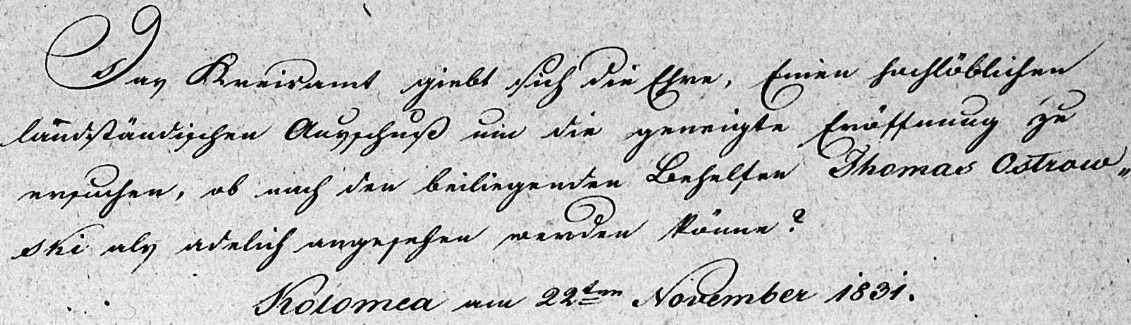 Das Kreisamt giebt sich die Ehre, Einen hochlöblichen
landständischen Ausschuß um die geneigte Eröffnung zu
ersuchen, ob nach den beiliegenden Behelfen Thomas Ostrow„
ski als adelich angesehen werden könne?
Kolomea am 22ten November 1831.